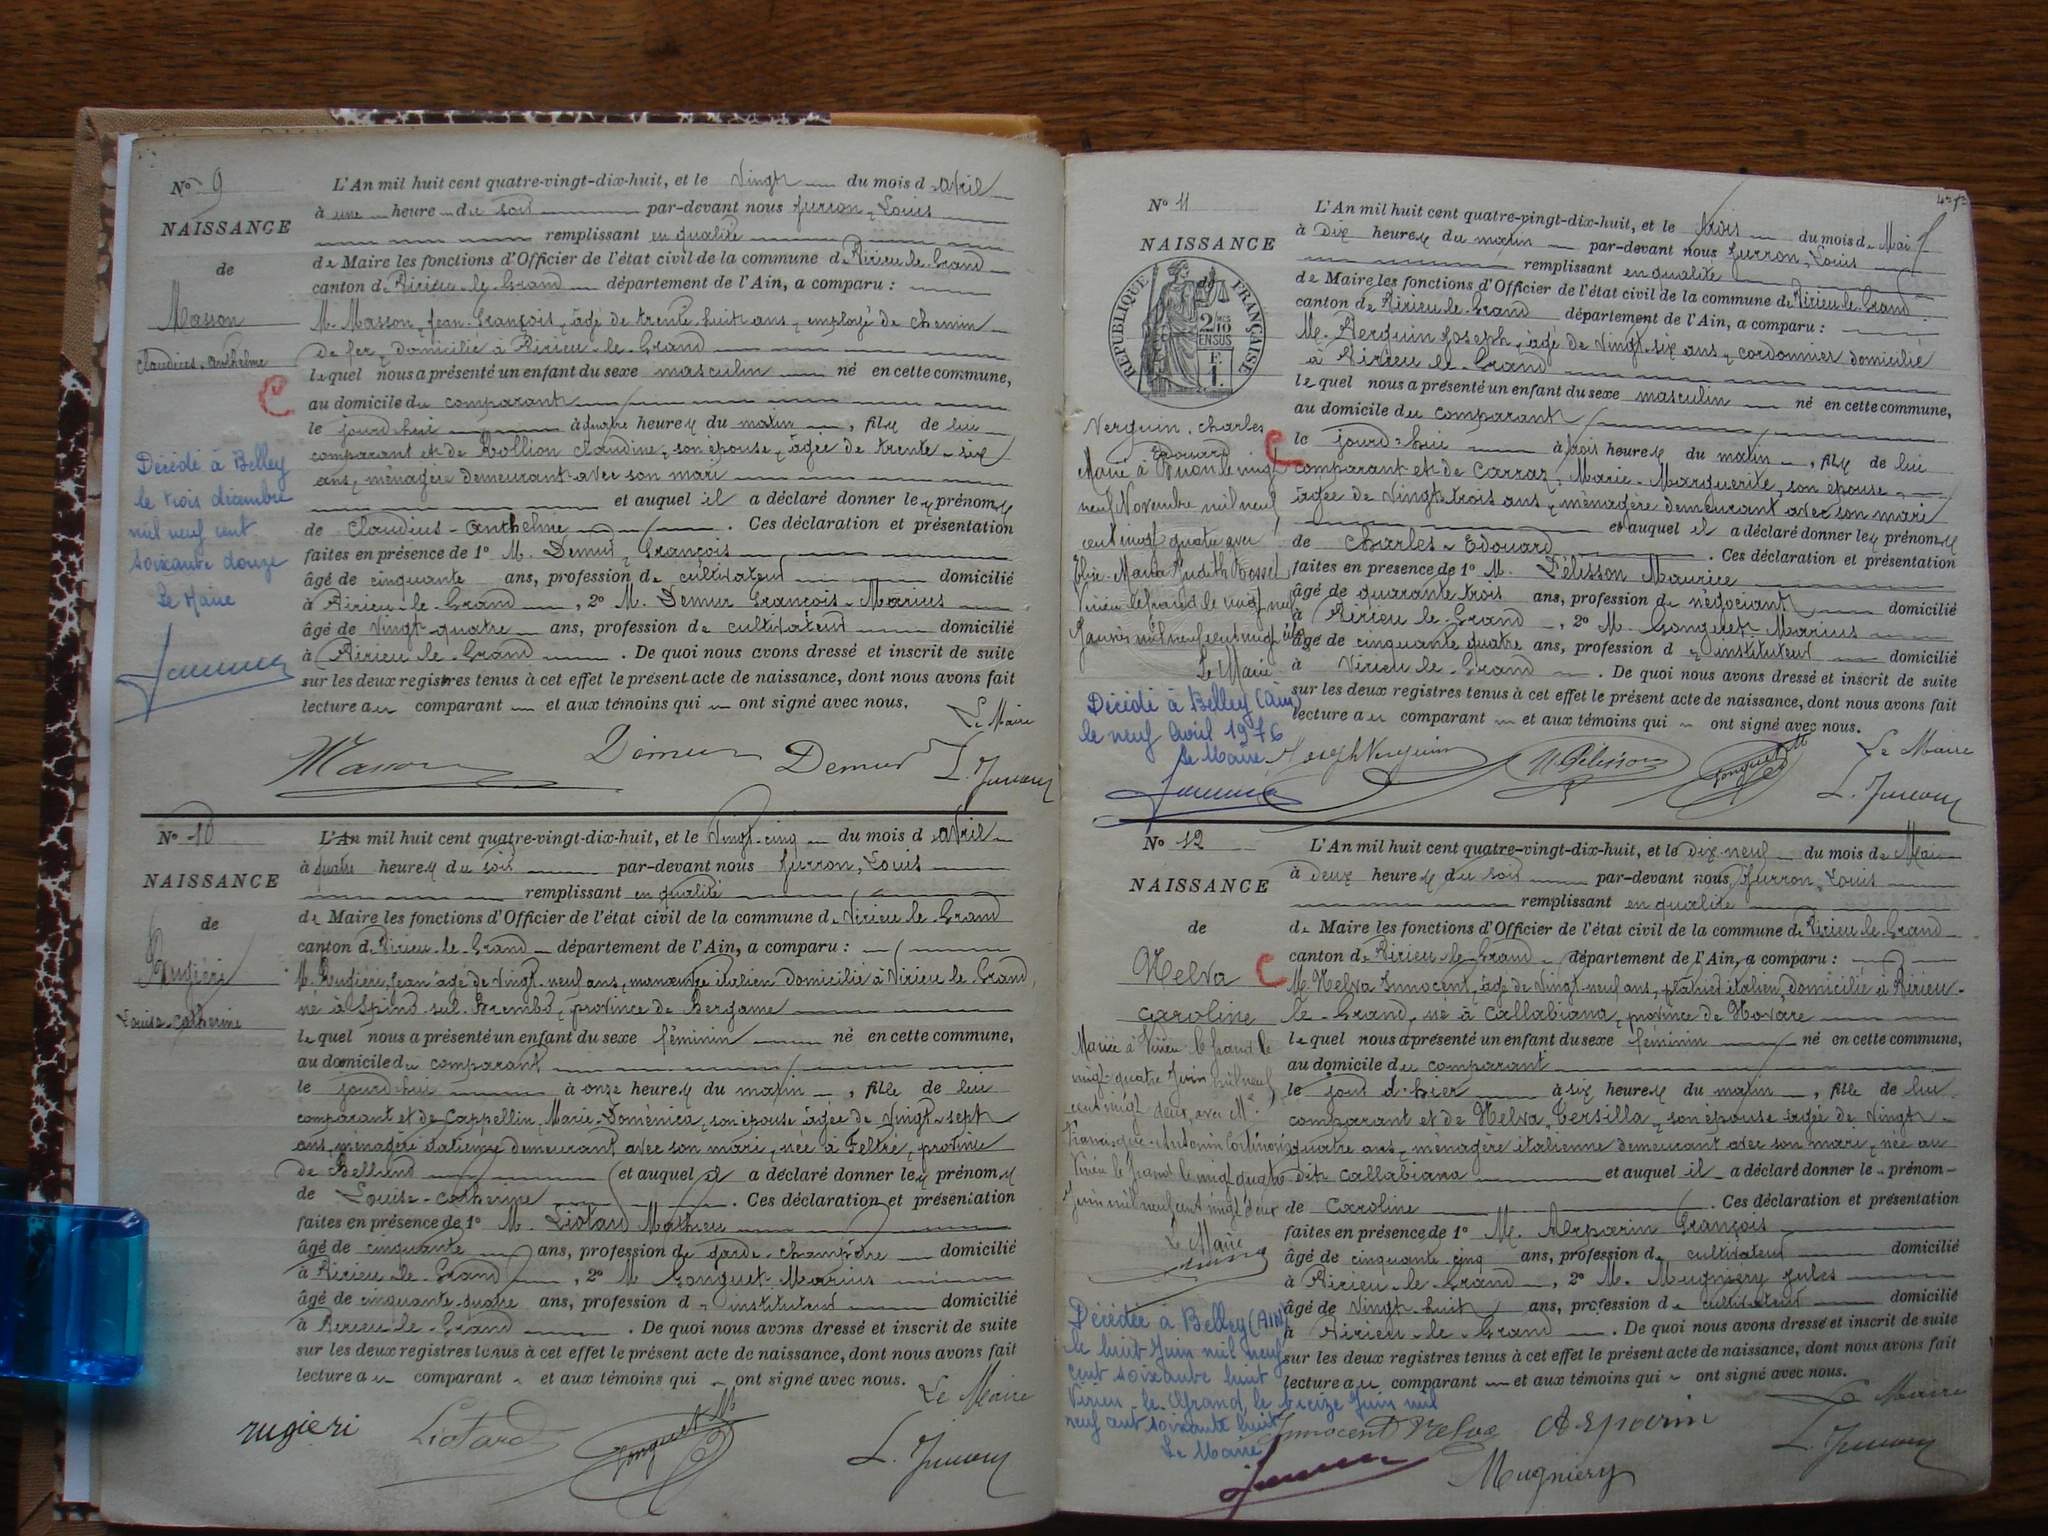 N° 9
NAISSANCE
de
Masson
Claudius-Anthelme
Décédé à Belley
le trois décembre
mil neuf cent
soixante douze
Le Maire
L'An mil huit cent quatre-vingt-dix-huit, et le vingt du mois d'avril
à une heure du soir par-devant nous Juvron, Louis
remplissant en qualité
de Maire les fonctions d'Officier de l'état civil de la commune de Virieu-le-Grand
canton de Virieu-le-Grand département de l'Ain, a comparu :
M. Masson, Jean-François, âgé de trente-huit ans, employé de chemin
de fer, domicilié à Virieu-le-Grand
lequel nous a présenté un enfant du sexe masculin né en cette commune,
au domicile du comparant
le jourd'hui à quatre heures du matin, fils de lui
comparant et de Rollion Claudine, son épouse, âgée de trente-six
ans, ménagère demeurant avec son mari
et auquel il a déclaré donner les prénoms
de Claudius-Anthelme. Ces déclaration et présentation
faites en présence de 1° M. Demur, François
âgé de cinquante ans, profession de cultivateur domicilié
à Virieu-le-Grand, 2° M. Demur François-Marius
âgé de vingt-quatre ans, profession de cultivateur domicilié
à Virieu-le-Grand. De quoi nous avons dressé et inscrit de suite
sur les deux registres tenus à cet effet le présent acte de naissance, dont nous avons fait
lecture au comparant et aux témoins qui ont signé avec nous.
Le Maire
Masson Demur Demur L. Juvron
N° 10
NAISSANCE
de
Rugiéri
Louise-Catherine
L'An mil huit cent quatre-vingt-dix-huit, et le vingt-cinq du mois d'avril
à quatre heures du soir par-devant nous Juvron, Louis
remplissant en qualité
de Maire les fonctions d'Officier de l'état civil de la commune de Virieu-le-Grand
canton de Virieu-le-Grand département de l'Ain, a comparu :
M. Rugiéri, Jean âgé de vingt-neuf ans, manœuvre italien domicilié à Virieu-le-Grand,
né à Spino sul Brembo, province de Bergame
lequel nous a présenté un enfant du sexe féminin né en cette commune,
au domicile du comparant
le jourd'hui à onze heures du matin, fille de lui
comparant et de Cappellin, Marie-Doménica, son épouse âgée de vingt-sept
ans, ménagère italienne demeurant avec son mari, née à Feltré, province
de Bellund et auquel il a déclaré donner les prénoms
de Louise-Catherine. Ces déclaration et présentation
faites en présence de 1° M. Liotard Mathieu
âgé de cinquante ans, profession de garde-champêtre domicilié
à Virieu-le-Grand, 2° M. Gonguet Marius
âgé de cinquante-quatre ans, profession d'instituteur domicilié
à Virieu-le-Grand. De quoi nous avons dressé et inscrit de suite
sur les deux registres tenus à cet effet le présent acte de naissance, dont nous avons fait
lecture au comparant et aux témoins qui ont signé avec nous.
Le Maire
rugieri Liotard Gonguet Ms L. Juvron
N° 11
NAISSANCE
RÉPUBLIQUE FRANÇAISE
2/10 EN SUS
Verguin, Charles
Edouard
Marié à le vingt
neuf Novembre mil neuf
cent vingt quatre avec
Elise-Maria Judith Rossel
Virieu le Grand le vingt neuf
Le Maire
Décédé à Belley (Ain)
le neuf Avril 1976
Le Maire
L'An mil huit cent quatre-vingt-dix-huit, et le trois du mois de Mai
à dix heures du matin par-devant nous Juvron, Louis
remplissant en qualité
de Maire les fonctions d'Officier de l'état civil de la commune de Virieu-le-Grand
canton de Virieu-le-Grand département de l'Ain, a comparu :
M. Verguin Joseph, âgé de vingt-six ans, cordonnier domicilié
à Virieu-le-Grand
lequel nous a présenté un enfant du sexe masculin né en cette commune,
au domicile du comparant
le jourd'hui à trois heures du matin, fils de lui
comparant et de Carraz, Marie-Marguerite, son épouse,
âgée de vingt-trois ans, ménagère demeurant avec son mari
et auquel il a déclaré donner les prénoms
de Charles-Edouard. Ces déclaration et présentation
faites en présence de 1° M. Pélisson Maurice
âgé de quarante-trois ans, profession de négociant domicilié
à Virieu-le-Grand, 2° M. Gonguet Marius
âgé de cinquante quatre ans, profession d'instituteur domicilié
à Virieu-le-Grand. De quoi nous avons dressé et inscrit de suite
sur les deux registres tenus à cet effet le présent acte de naissance, dont nous avons fait
lecture au comparant et aux témoins qui ont signé avec nous.
Joseph Verguin M. Pélisson Gonguet M Le Maire
L. Juvron
N° 12
NAISSANCE
de
Nelva
Caroline
Mariée à Virieu-le-Grand le
vingt-quatre Juin mil neuf
cent vingt deux, avec Mr
Virieu le Grand le vingt quatre
Juin mil neuf cent vingt deux
Le Maire
Décédée à Belley (AIN)
le huit Juin mil neuf
cent soixante huit
Virieu-le-Grand, le treize Juin mil
neuf cent soixante huit
Le Maire
L'An mil huit cent quatre-vingt-dix-huit, et le dix-neuf du mois de Mai
à deux heures du soir par-devant nous, Juvron, Louis
remplissant en qualité
de Maire les fonctions d'Officier de l'état civil de la commune de Virieu-le-Grand
canton de Virieu-le-Grand département de l'Ain, a comparu :
M. Nelva Innocent, âgé de vingt-neuf ans, italien, domicilié à Virieu-
le-Grand, né à Callabiana, province de Novare
lequel nous a présenté un enfant du sexe féminin né en cette commune,
au domicile du comparant
le jour d'hier à six heures du matin, fille de lui
comparant et de Nelva, Tersilla, son épouse âgée de vingt-
quatre ans, ménagère italienne demeurant avec son mari, née au
dit Callabiana et auquel il a déclaré donner le prénom
de Caroline. Ces déclaration et présentation
faites en présence de 1° M. Arparin François
âgé de cinquante cinq ans, profession de cultivateur domicilié
à Virieu-le-Grand, 2° M. Mugniery Jules
âgé de vingt-huit ans, profession de cultivateur domicilié
à Virieu-le-Grand. De quoi nous avons dressé et inscrit de suite
sur les deux registres tenus à cet effet le présent acte de naissance, dont nous avons fait
lecture au comparant et aux témoins qui ont signé avec nous.
Le Maire
Innocent Nelva Mugniery L. Juvron